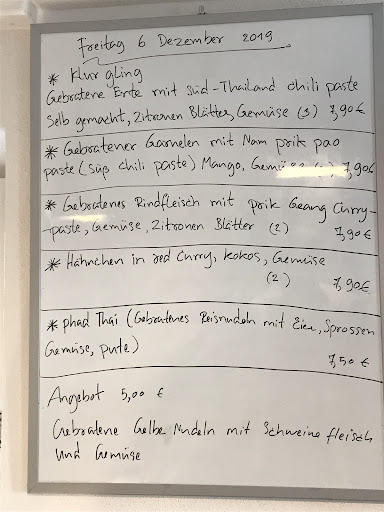 Freitag 6 Dezember 2019
* Klur gling
Gebratene Ente mit süd-Thailand chili paste
Selb gemacht, Zitronen Blätter, Gemüse (3) 7,90€
* Gebratener Garnelen mit Nam prik pao
paste (süß chili paste) Mango, 7,90€
* Gebratenes Rindfleisch mit prik Geang Curry-
paste, Gemüse, Zitronen Blätter (2) 7,90€
* Hähnchen in red Curry, kokos, Gemüse
(2) 7,90€
* phad Thai (Gebratenes Reisnudeln mit Eier, Sprossen
Gemüse, pute) 7,50€
Angebot 5,00 €
Gebratene Gelbe Nudeln mit Schweinefleisch
und Gemüse